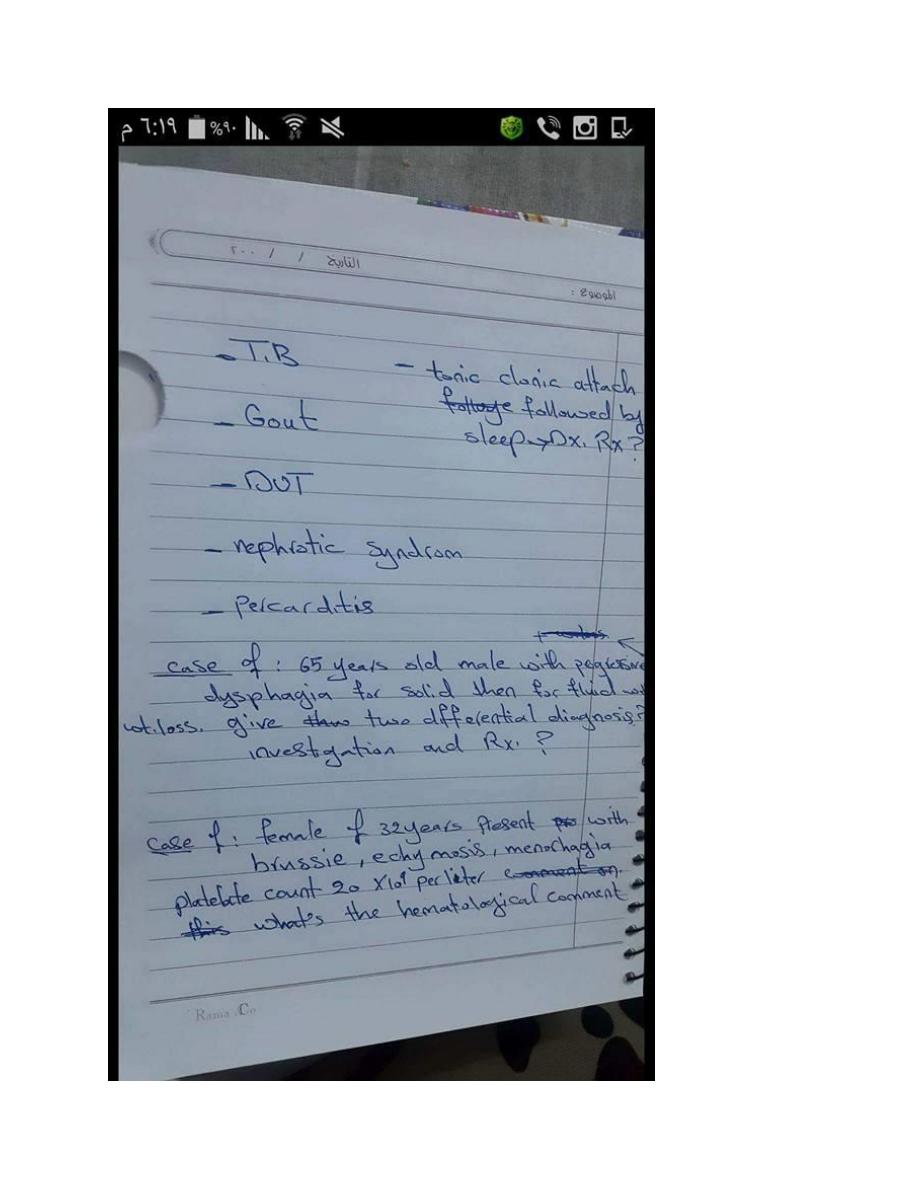 م ٦:١٩ %٩٠
التاريخ / / ٢٠٠
الموضوع :
- T.B
- tonic clonic attach
followed by
sleep → Dx. Rx ?
- Gout
- DVT
- nephrotic syndrom
- Percarditis
case of : 65 years old male with pogressive
dysphagia for solid then for fluid
wt.loss. give two dfferential diagnosis?
investgation and Rx. ?
case f : female f 32 years Present with
brussie , echymosis , menorhagia
platelate count 20 X10⁹ per liter
what's the hematological comment
Rama Co